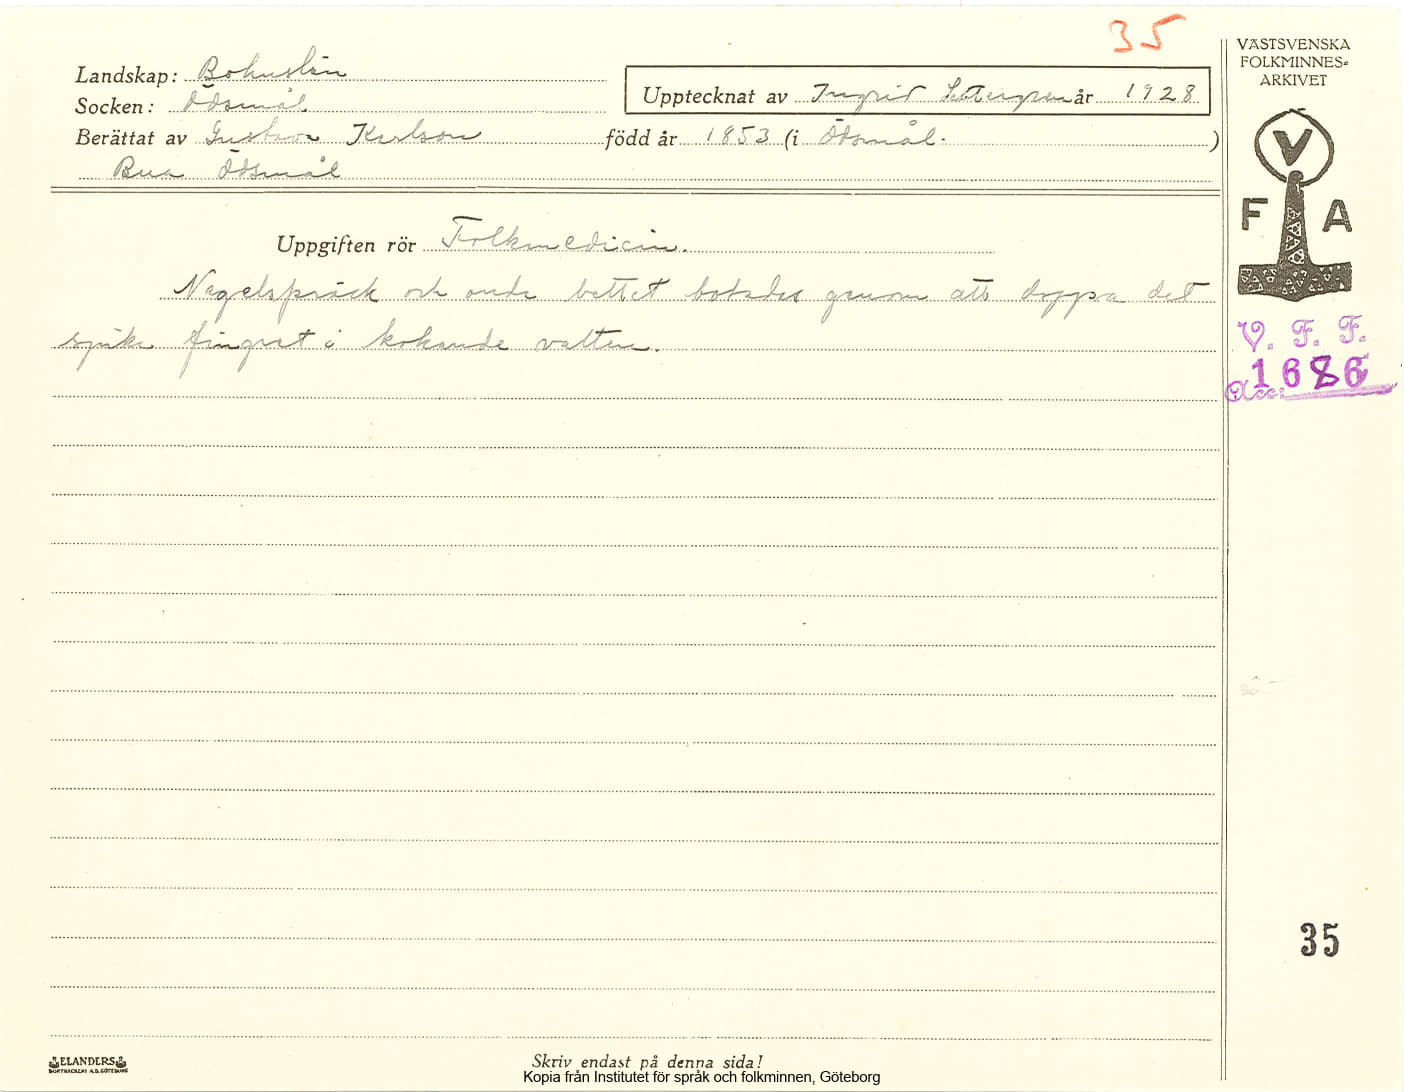 35
VÄSTSVENSKA
FOLKMINNES=
ARKIVET
Landskap: Bohuslän
Socken: Ödsmål
Upptecknat av Ingrid år 1928
Berättat av Gustav Karlson född år 1853 (i Ödsmål. )
Bua Ödsmål
V
F A
Uppgiften rör Folkmedicin.
Nagelspräck och onda bettet botades genom att doppa det
sjuka fingret i kokande vatten.
V. F. F.
Acc: 1686
35
ELANDERS
BOKTRYCKERI A.B. GÖTEBORG
Skriv endast på denna sida!
Kopia från Institutet för språk och folkminnen, Göteborg